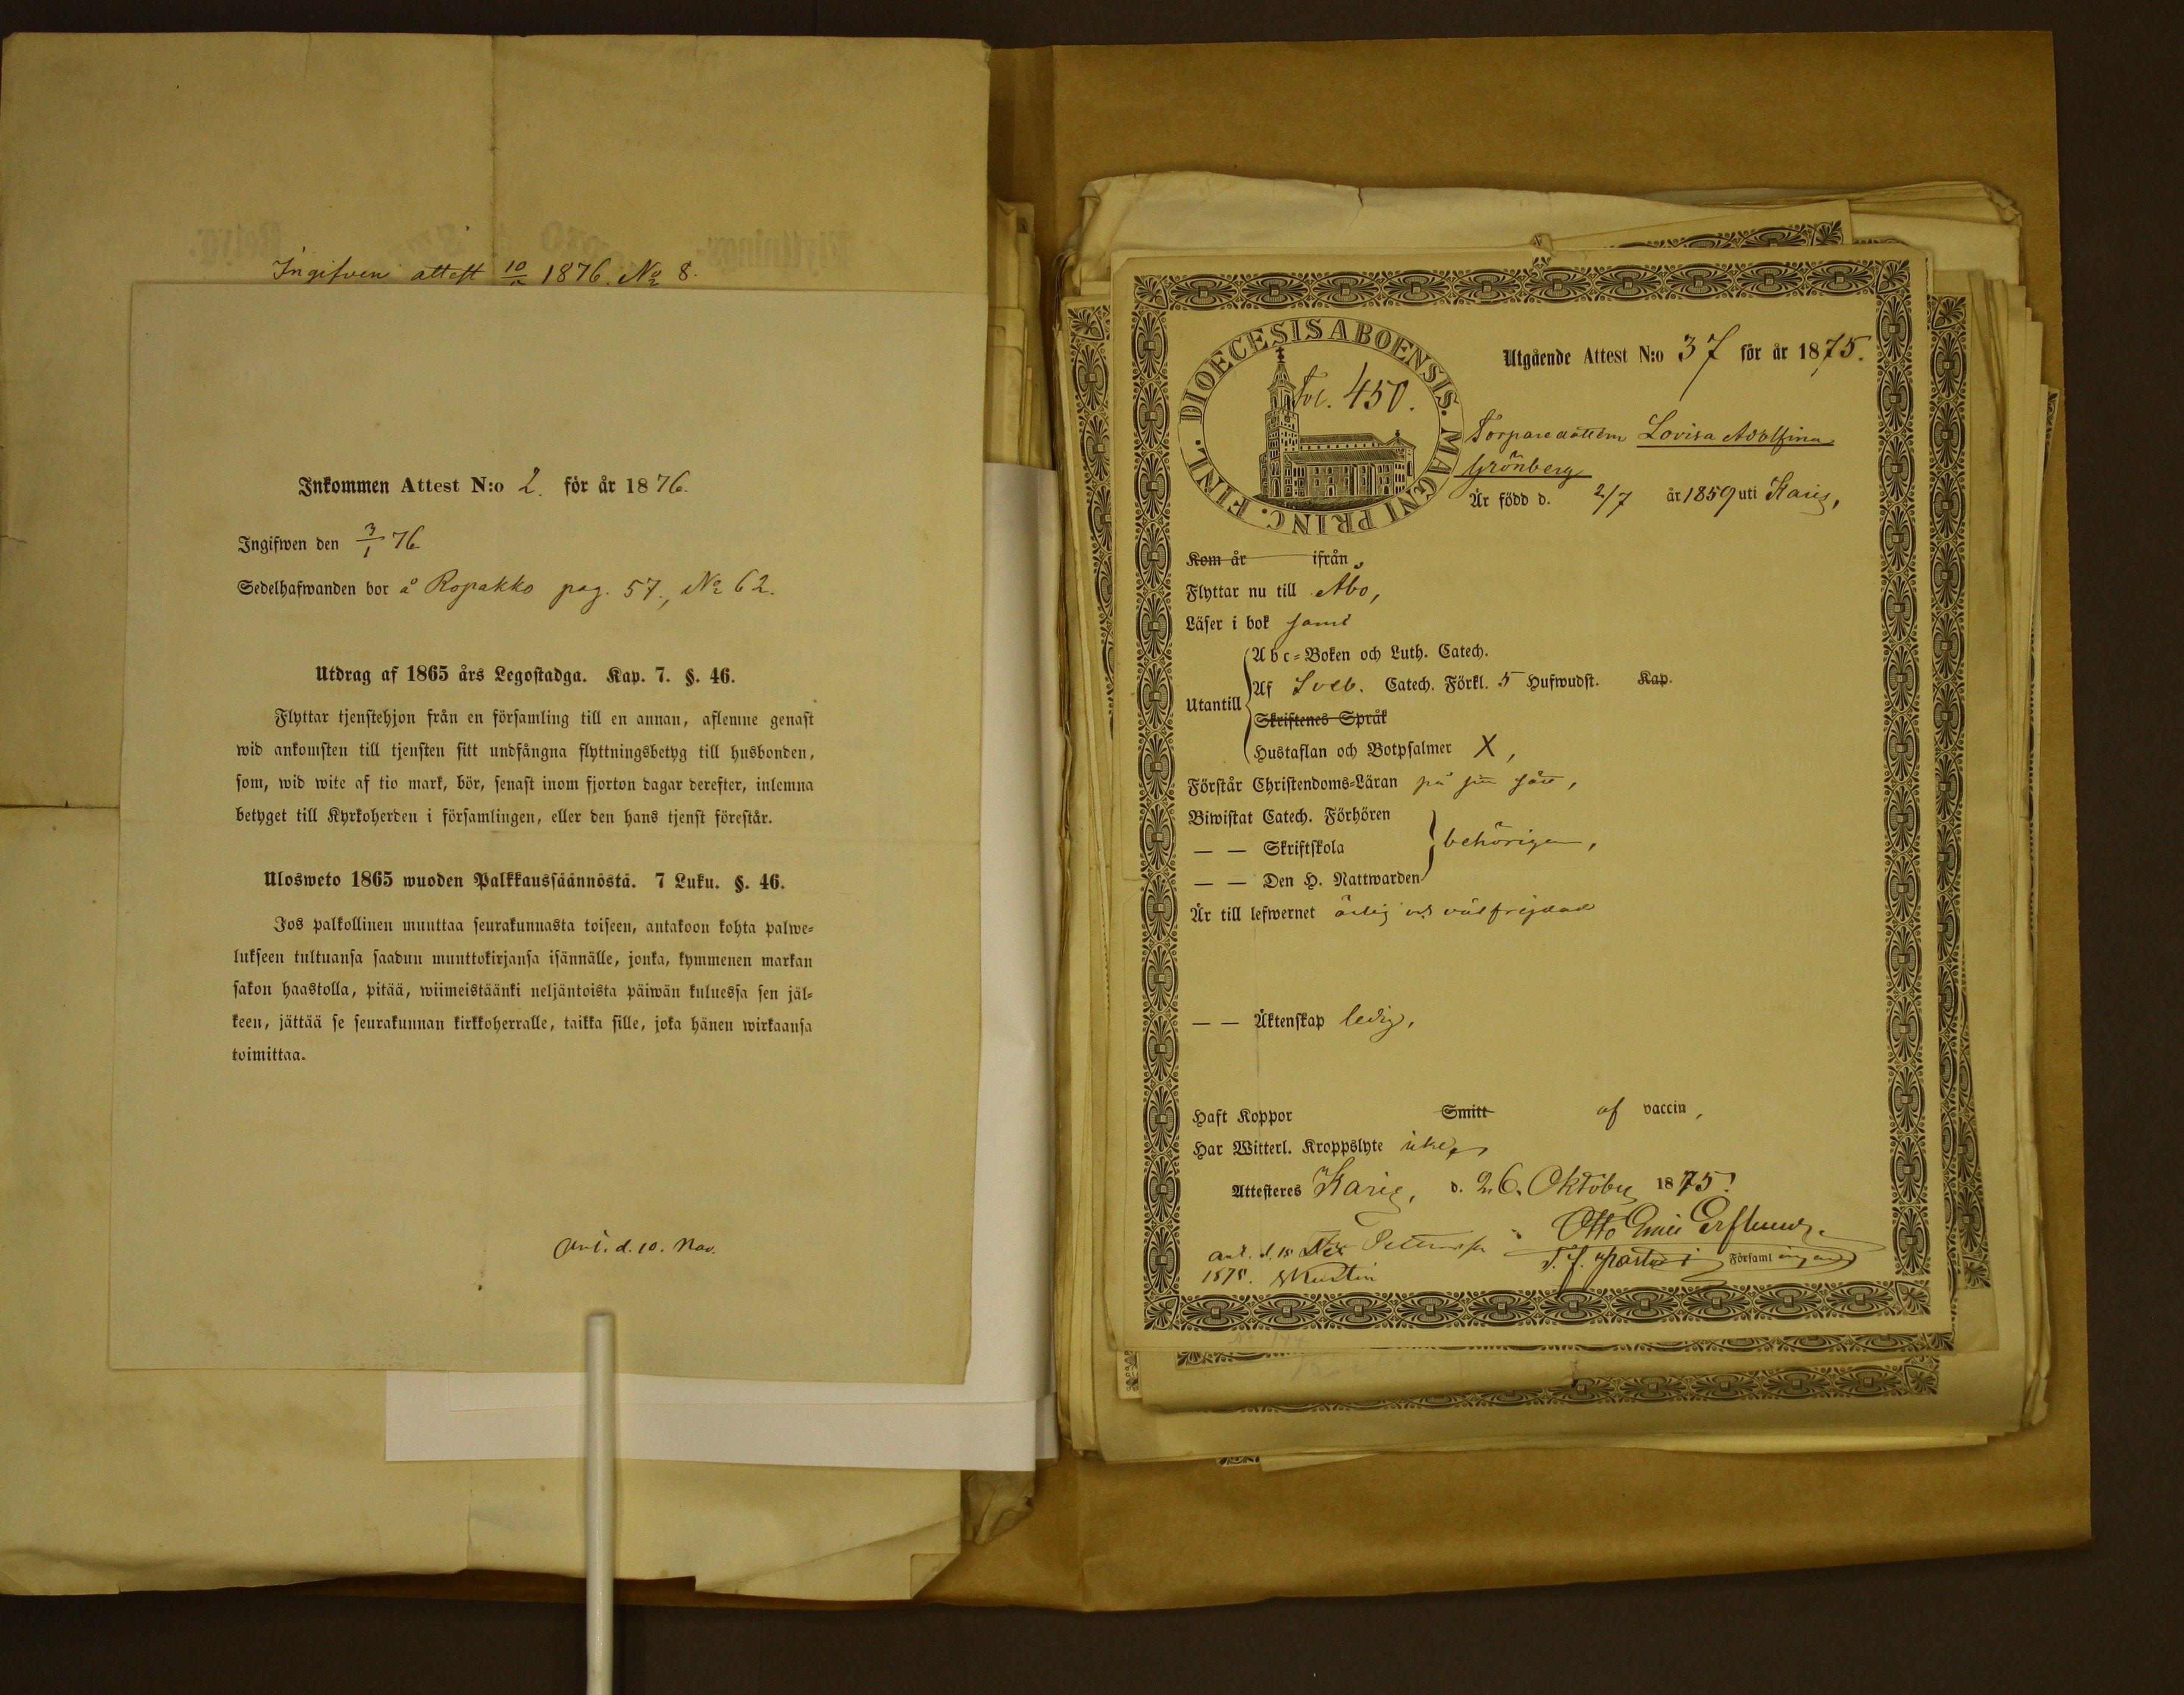 Ingifven attest 10/ 1876. No 8.
Inkommen Attest N:o 2. för år 1876.
Ingifwen den 3/1 76
Sedelhafwanden bor å Ropakko pag. 57., No 62.
Utdrag af 1865 års Legostadga. Kap. 7. §. 46.
Flyttar tjenstehjon från en församling till en annan, aflemne genast
wid ankomsten till tjensten sitt undfångna flyttningsbetyg till husbonden,
som, wid wite af tio mark, bör, senast inom fjorton dagar derefter, inlemna
betyget till Kyrkoherden i församlingen, eller den hans tjenst förestår.
Ulosweto 1865 wuoden Palkkaussäännöstä. 7 Luku. §. 46.
Jos palkollinen muuttaa seurakunnasta toiseen, antakoon kohta palwe-
lukseen tultuansa saadun muuttokirjansa isännälle, jonka, kymmenen markan
sakon haastolla, pitää, wiimeistäänki neljäntoista päiwän kuluessa sen jäl-
keen, jättää se seurakunnan kirkkoherralle, taikka sille, joka hänen wirkaansa
toimittaa.
Ant. d. 10. Nov.
DIOECESIS ABOENSIS. MAGNI PRINC. FINL.
Fol. 450.
Utgående Attest N:o 37 för år 1875.
Torparedottern Lovisa Adolfina
Grönberg
Är född d. 2/7 år 1859 uti Karis,
Kom år ifrån
Flyttar nu till Åbo,
Läser i bok samt
Utantill
Abc-Boken och Luth. Catech.
Af Sveb. Catech. Förkl. 5 Hufwudst. Kap.
Skriftenes Språk
Hustaflan och Botpsalmer X,
Förstår Christendoms-Läran på sin sätt,
Biwistat Catech. Förhören
— — Skriftskola behörigen,
— — Den H. Nattwarden
Är till lefwernet ärlig och välfrejdad
— — Äktenskap ledig,
Haft Koppor Smitt af vaccin,
Har Witterl. Kroppslyte icke,
Attesteres Karis, d. 26. Oktober 1875.
Otto Emil
Ant. d. 15
T. f. Pastor i Församlingen
1875.